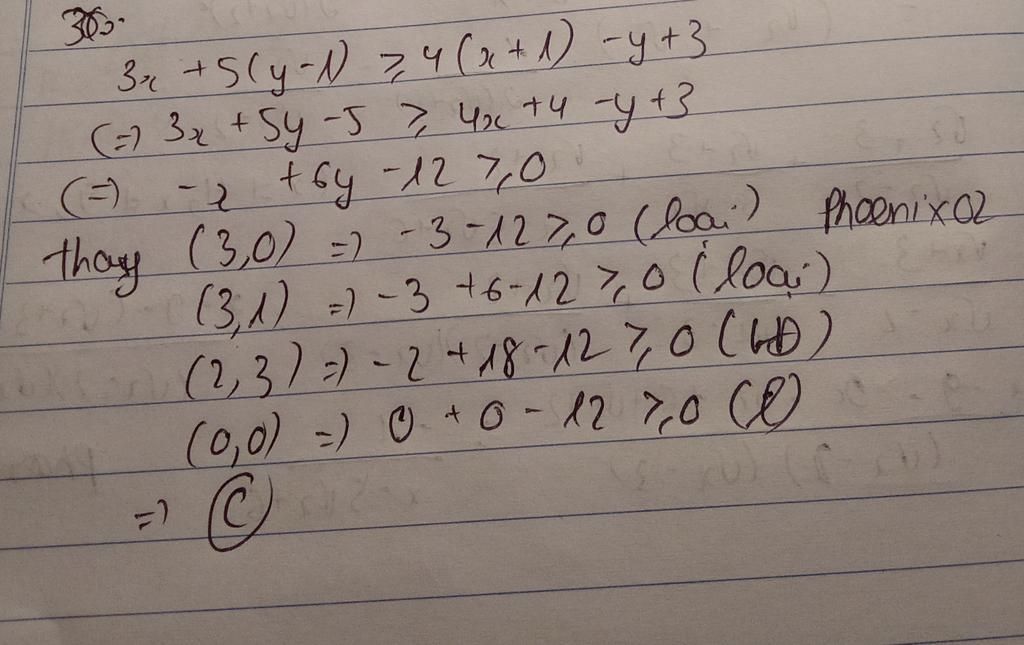 3x + 5(y-1) ≥ 4(x+1) - y + 3
(=) 3x + 5y - 5 ≥ 4x + 4 - y + 3
(=) -x + 6y - 12 ≥ 0
thay (3,0) =) -3 - 12 ≥ 0 (loại) Phoenix02
(3,1) =) -3 + 6 - 12 ≥ 0 (loại)
(2,3) =) -2 + 18 - 12 ≥ 0 ( )
(0,0) =) 0 + 0 - 12 ≥ 0 (l)
=) C